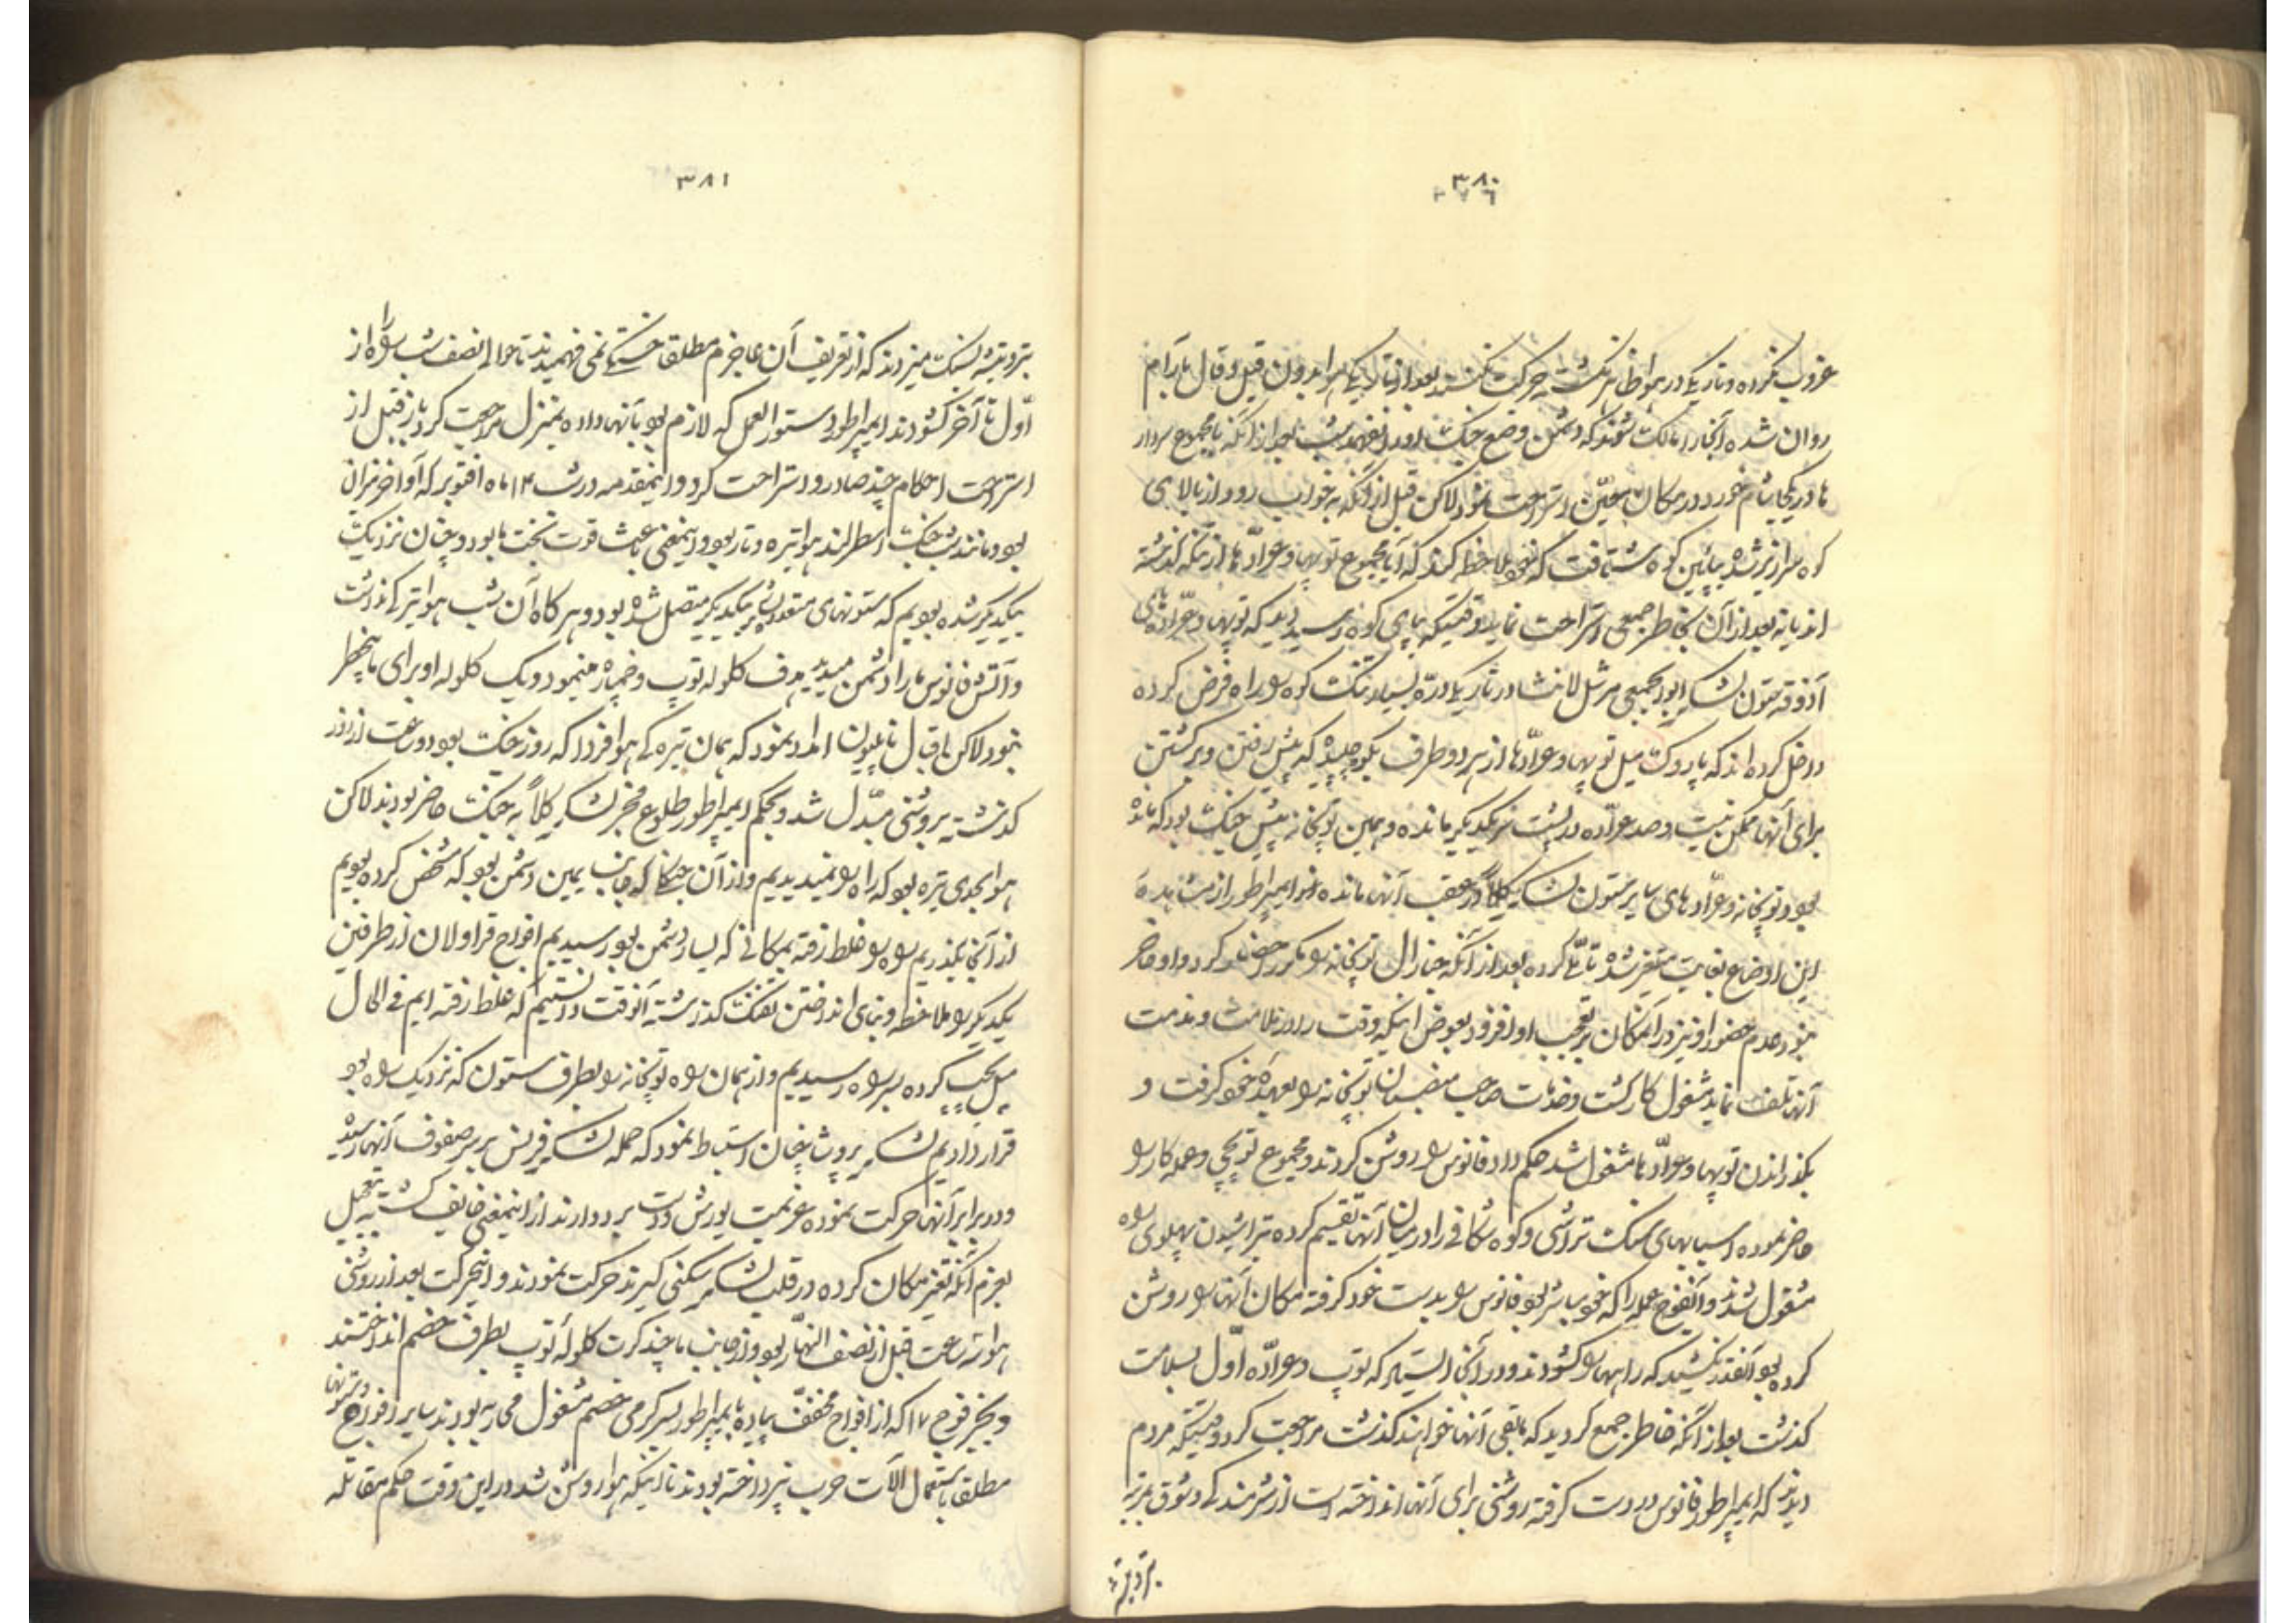 ۳۸۰
۳۷۶
غروب نکرده و تاریکی در هوا ظاهر نگشته حرکت نکنند بعد از تاریکی هوا بدون قیل و قال بآرام
روان شده آنجا را مالک شوند که دشمن وضع جنگ او را نفهمد شب بعد از آنکه با مجموع سردار
ها در یکجا شام خورد در مکان معین استراحت نمود لاکن قبل از آنکه بخواب رود از بالای
کوه سرازیر شده بپائین کوه شتافت که خود ملاحظه کند که آیا مجموع توپها و عرادها از تنگه گذشته
اند یا نه بعد از آن بخاطر جمعی استراحت نماید وقتیکه بپای کوه رسید دید که توپها و عراده های
آذوقه ستون لشکر ابوابجمعی مرشل لانشا در تاریکی دره بسیار تنگ کوه را راه فرض کرده
داخل کرده اند که پاروک میل توپها و عرادها از هر دو طرف بکوه چسپیده که پیش رفتن و برگشتن
برای آنها ممکن نیست و صد عراده در پشت سر یکدیگر مانده و همین توپخانه پیش جنگ بود که مانده
بود و توپخانه و عرادهای سایر ستون لشکر کلاً در عقب آنها مانده اند ایمپراطور از مشاهدهٔ
این اوضاع بغایت متغیر شده تأملی کرده بعد از آنکه جنارال توپخانه را مکرر احضار کرد و او حاضر
نبود عدم حضور او نیز در آنمکان بر تعجب او افزود بعوض اینکه وقت را در ملامت و مذمت
آنها تلف نماید مشغول کار گشت و خدمات صاحب منصبان توپخانه را بعهدهٔ خود گرفت و
بگذراندن توپها و عرادها مشغول شد حکم داد فانوس را روشن کردند و مجموع توپچی و عمله کار را
حاضر نموده اسبابهای سنگ تراشی و کوه شکافی را در میان آنها تقسیم کرده بتراشیدن پهلوی راه
مشغول شدند و آنفوج عمله را که خود مباشر بود فانوس را بدست خود گرفته مکان آنها را روشن
کرده بود آنقدر نکشید که راهها را گشودند و در آنجا ایستاد که توپ و عراده اول بسلامت
گذشت بعد از آنکه خاطر جمع گردید که مابقی آنها خواهند گذشت مراجعت کرد وقتیکه مردم
دیدند که ایمپراطور فانوس در دست گرفته روشنی برای آنها انداخته است از شرمندگی و شوق
بتر و تیشه
۳۸۱
بتر و تیشه بسنگ میزدند که از تعریف آن عاجزم مطلقا خستگی نمی فهمیدند تا حوالی نصف شب راه را از
اول تا آخر گشودند ایمپراطور دستورالعمل که لازم بود بآنها داده بمنزل مراجعت کرد باز قبل از
استراحت احکام چند صادر و استراحت کرد و اینمقدمه در شب ۱۳ ماه اقتوبر که اواخر خزان
بود و مانند شب جنگ اسطرلند هوا تیره و تار بود و اینمعنی باعث قوت بخت ما بود و چنان نزدیک
بیکدیگر شده بودیم که ستونهای متعدد بر یکدیگر متصل شده بود و هر گاه آن شب هوا تیرگی نداشت
و آتش فانوس ما را دشمن میدید هدف گلوله توپ و خمپاره مینمود و یک گلوله او برای ما بیخطر
نبود لاکن اقبال ناپلیون امداد نمود که همان تیرگی هوا فردا که روز جنگ بود دو ساعت از روز
گذشته بروشنی مبدل شد و بحکم ایمپراطور طلوع فجر لشکر کلاً به جنگ حاضر بودند لاکن
هوا بحدی تیره بود که راه را نمیدیدیم و از آن جنگلها که جانب یمین دشمن بود که مشخص کرده بودیم
از آنجا بگذریم راه را غلط رفته بمکانی که یسار دشمن بود رسیدیم افواج قراولان از طرفین
یکدیگر را ملاحظه و بنای انداختن تفنگ گذاشته آنوقت دانستیم که غلط رفته ایم فی الحال
میل بچپ کرده بسر راه رسیدیم و از همان راه توپخانه را بطرف ستون که نزدیک راه بود
قرار دادیم لشکر پروث چنان استنباط نمود که حمله لشکر فرنس بر سر صفوف آنها رسیده
و در برابر آنها حرکت نموده عزیمت یورش و دست برد دارند از اینمعنی خایف گشته بتعجیل
بعزم آنکه تغیر مکان کرده در قلب لشکر سکنی گیرند حرکت نمودند و اینحرکت بعد از روشنی
هوا سه ساعت قبل از نصف النهار بود و از جانب ما چند کرت گلوله توپ بطرف خصم انداختند
و بجز فوج ۱۷ که از افواج مخفف پیاده با ایمپراطور بسرگرمی خصم مشغول محاربه بودند سایر افواج و ستونها
مطلقا باستعمال آلات حرب نپرداخته بودند تا اینکه هوا روشن شد در این وقت حکم مقاتله